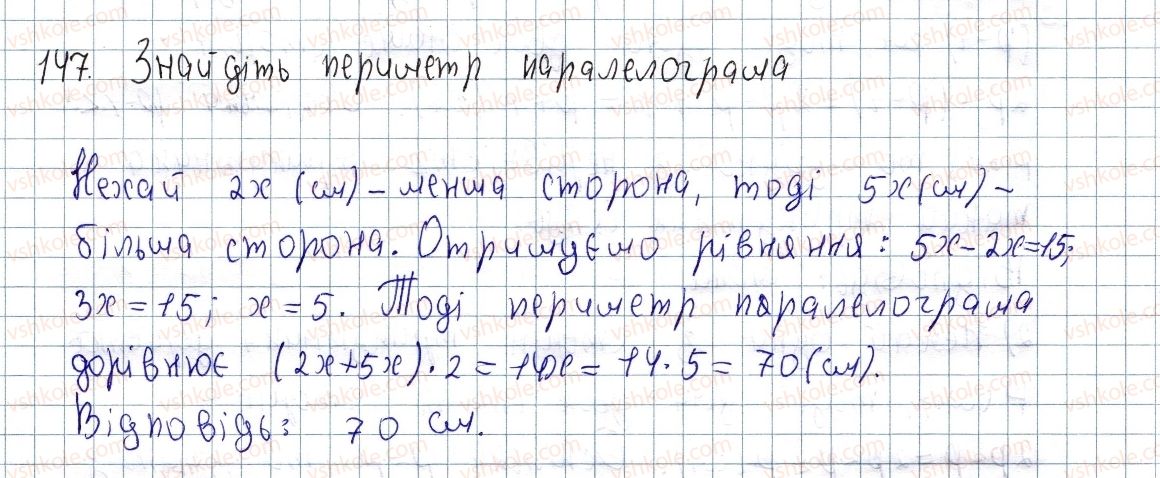 147. Знайдіть периметр паралелограма
Нехай 2x (см) – менша сторона, тоді 5x (см) –
більша сторона. Отримуємо рівняння: 5x – 2x = 15;
3x = 15; x = 5. Тоді периметр паралелограма
дорівнює (2x + 5x) · 2 = 14x = 14 · 5 = 70 (см).
Відповідь: 70 см.